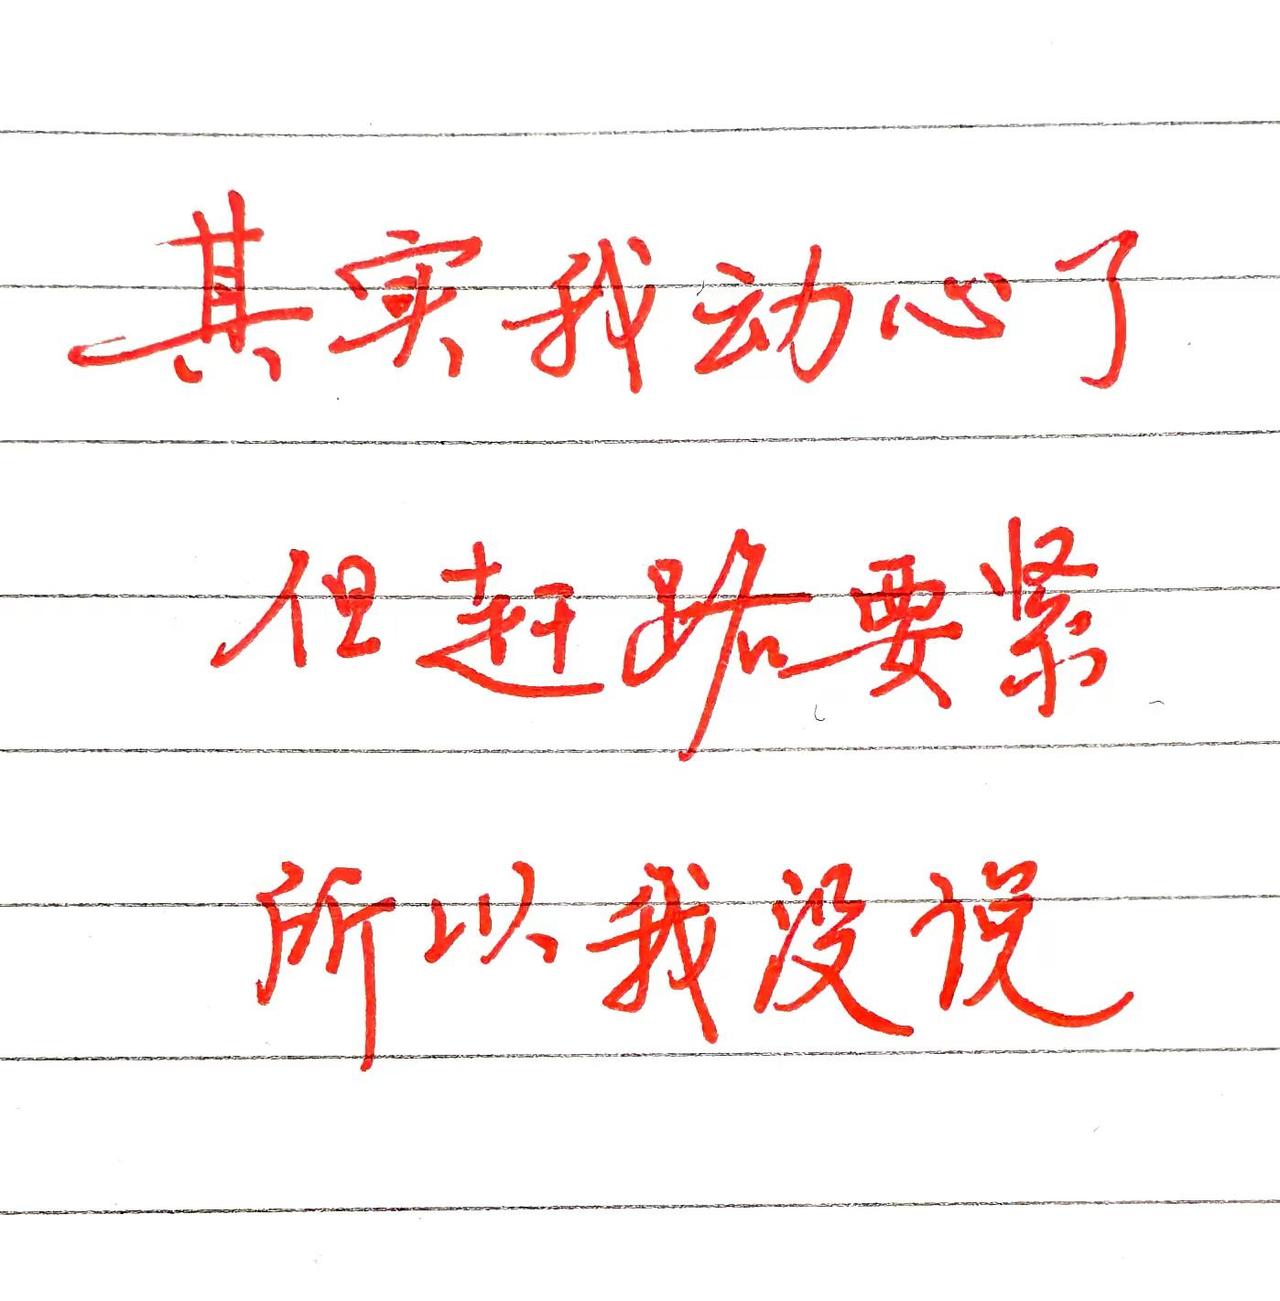 其实我动心了
但赶路要紧
所以我没说